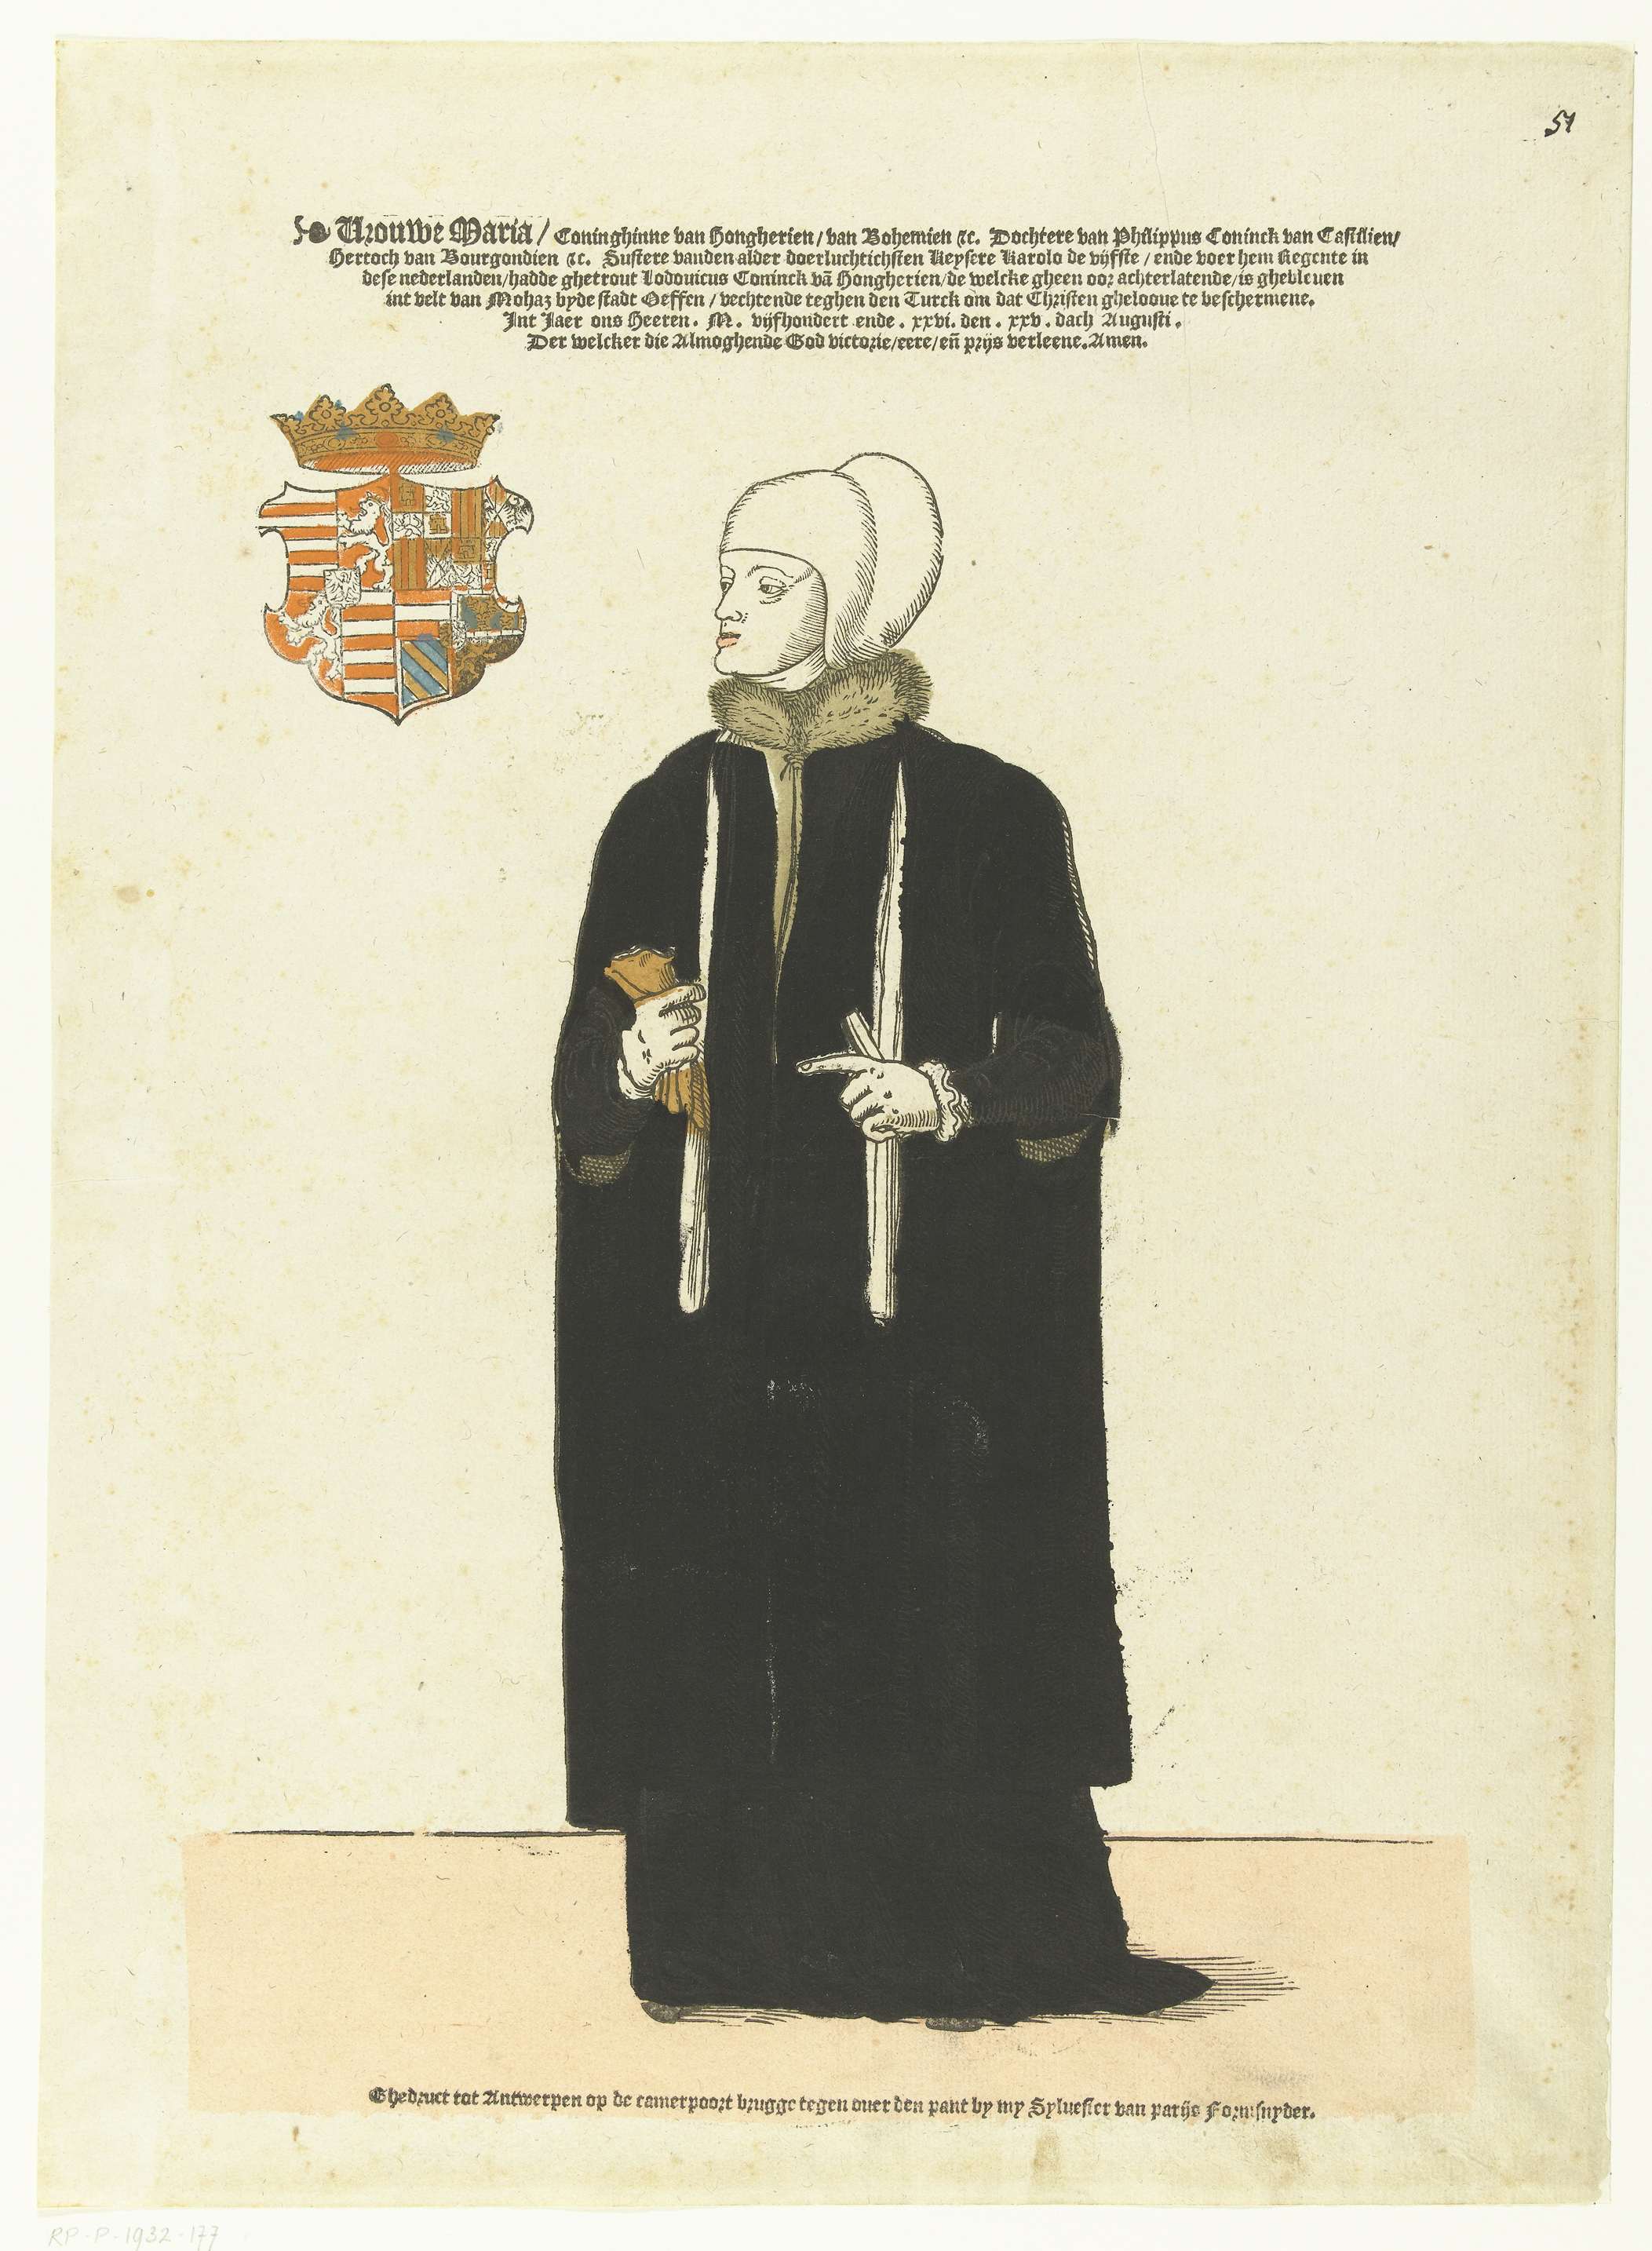 51
Vrouwe Maria / Coninghinne van Hongherien / van Bohemien ⁊c. Dochtere van Philippus Coninck van Castilien /
Hertoch van Bourgondien ⁊c. Sustere vanden alder doerluchtichsten Keysere Karolo de vijfste / ende voer hem Regente in
dese nederlanden / hadde ghetrout Lodouicus Coninck vā Hongherien / de welcke gheen oor achterlatende / is ghebleuen
int velt van Mohaz byde stadt Oeffen / vechtende teghen den Turck om dat Christen gheloove te beschermene.
Int Jaer ons Heeren . M . vijfhondert ende . xxvi . den . xxv . dach Augusti .
Der welcker die Almoghende God victorie / eere / eñ prijs verleene. Amen.
Ghedruct tot Antwerpen op de camerpoort brugge tegen ouer den pant by my Syluester van parijs Formsnyder.
RP-P-1932-177